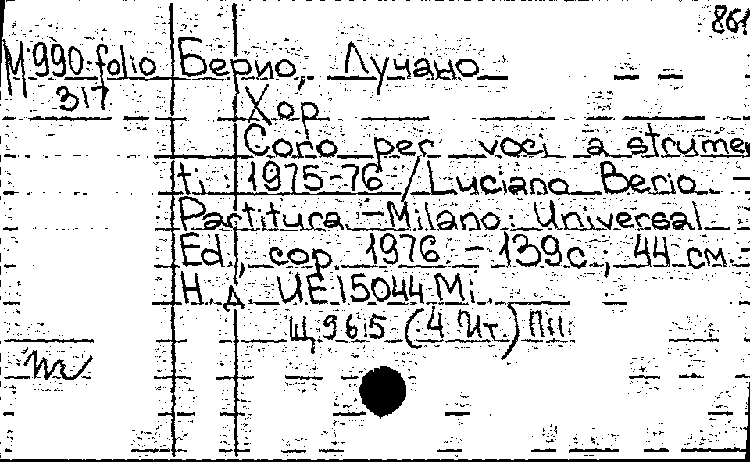 861
М 990-folio Берио, Лучано
317 Хор
Coro per voci a strumen
ti 1975-76 / Luciano Berio. -
Partitura. - Milano: Universal
Ed., cop. 1976 - 139 с.; 44 см. -
Н. д. UE 15044 Mi.
Щ 965 (4 Ит.)